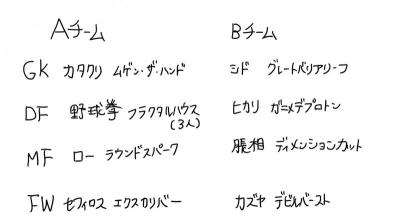 Aチーム Bチーム
GK カタクリ ムゲン・ザ・ハンド シド グレートバリアリーフ
DF 野球拳 フラクタルハウス ヒカリ ガニメデプロトン
(3人)
MF ロー ラウンドスパーク 脹相 ディメンションカット
FW セフィロス エクスカリバー カズヤ デビルバースト